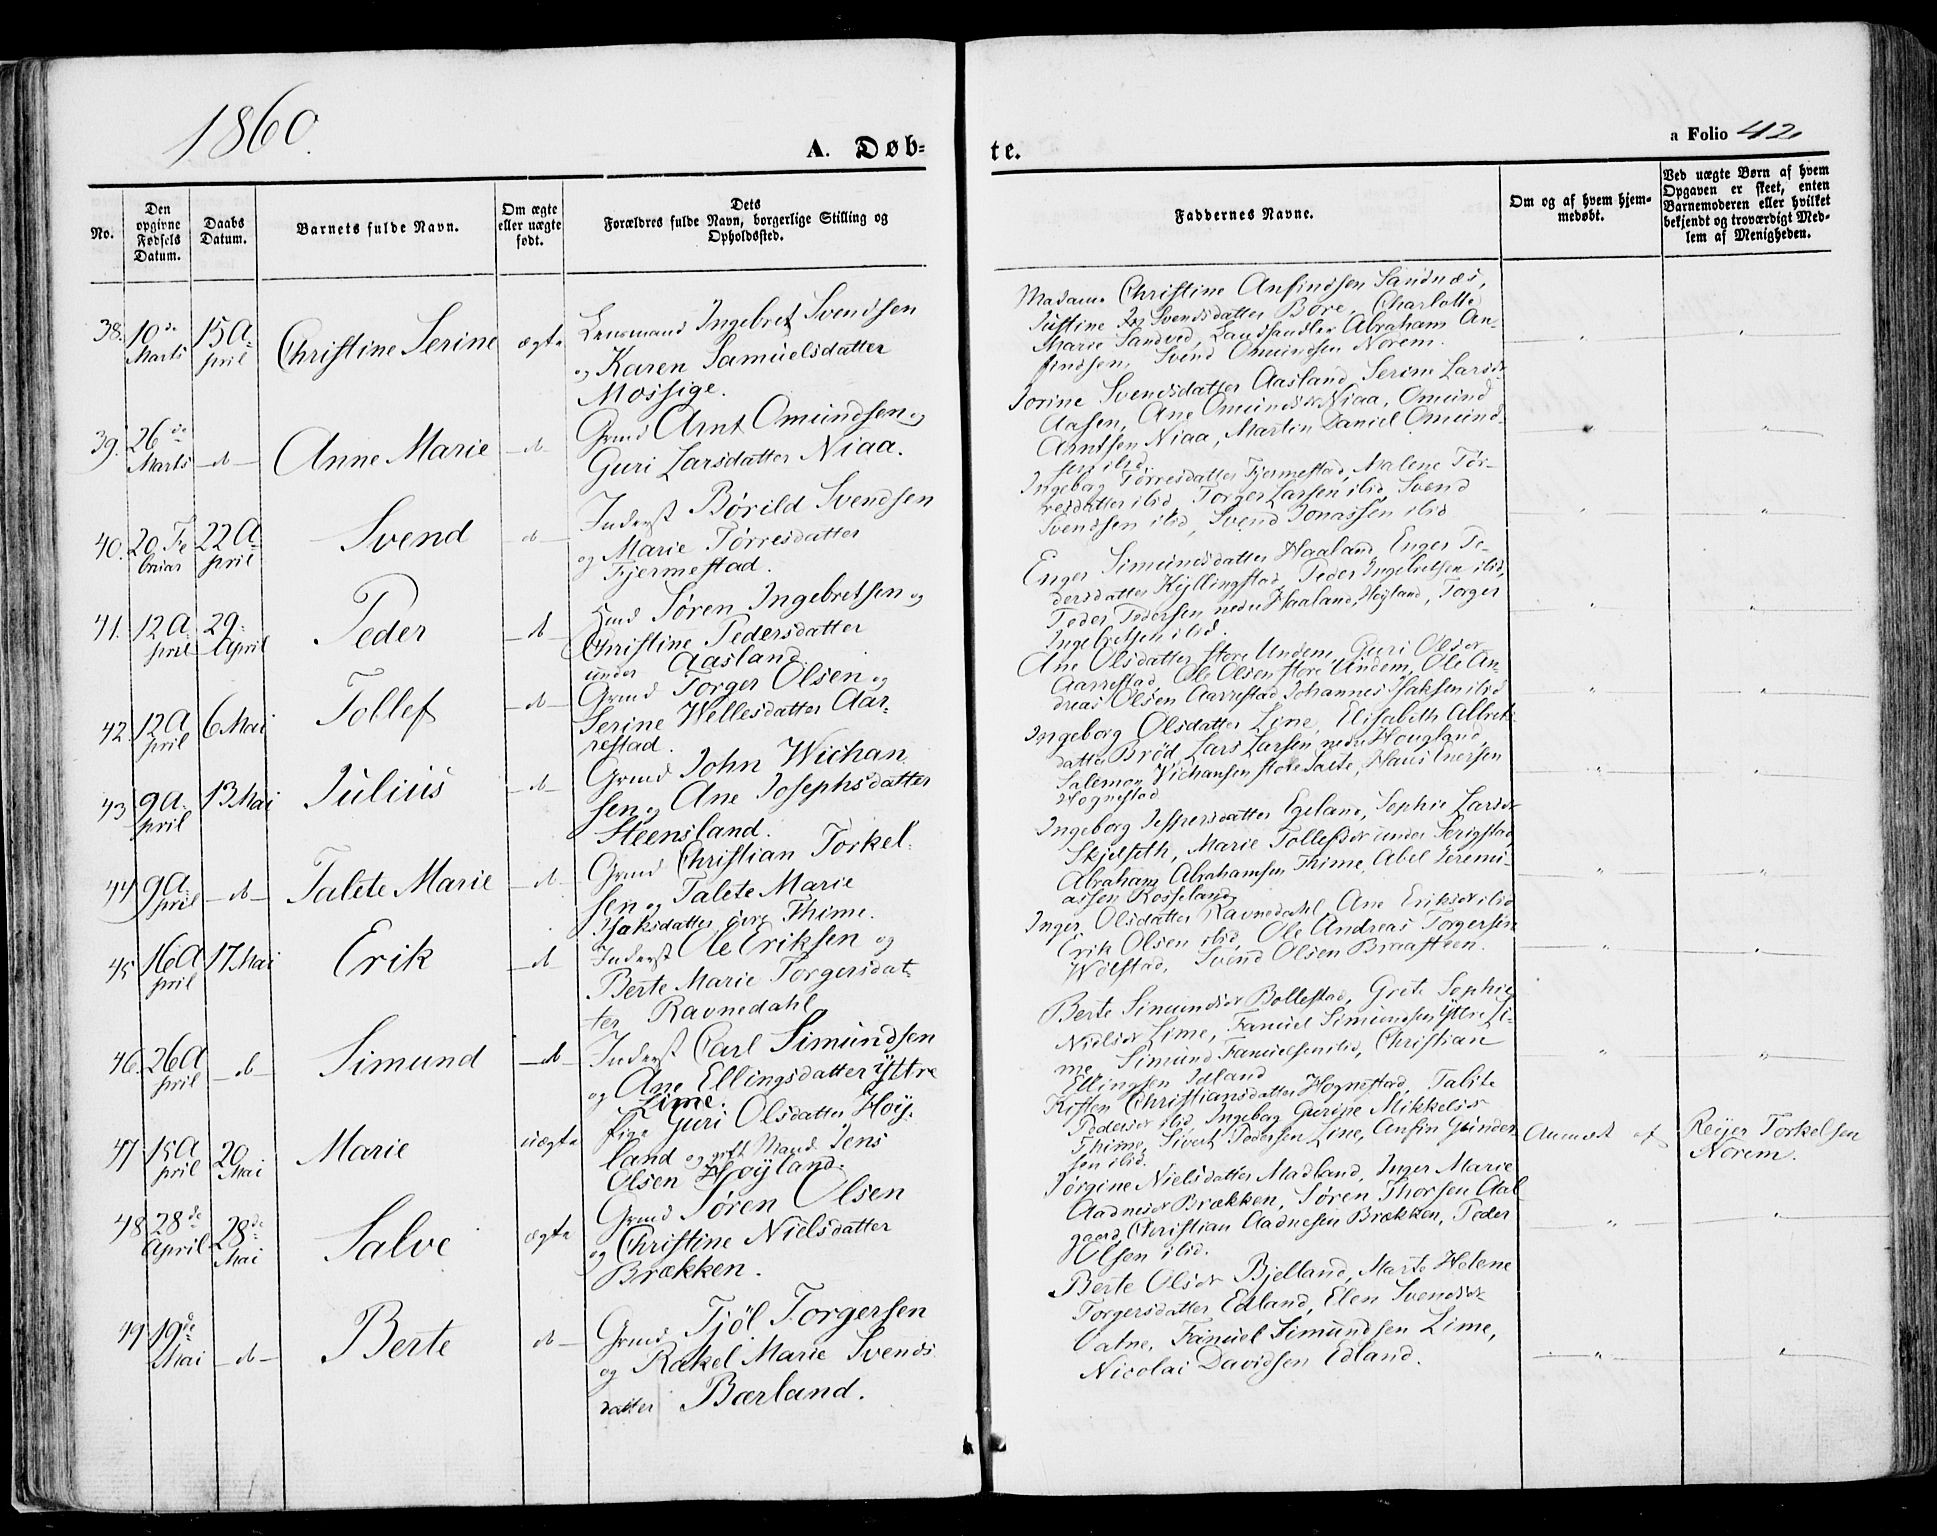 1860.
A. Døb-
te.
a Folio 42.
No.
Den opgivne Fødsels Datum.
Daabs Datum.
Barnets fulde Navn.
Om ægte eller uægte født.
Dets Forældres fulde Navn, borgerlige Stilling og Opholdssted.
Faddernes Navne.
Om og af hvem hjemmedøbt.
Ved uægte Børn af hvem Opgaven er skeet, enten Barnemoderen eller hvilket bekjendt og troværdigt Medlem af Menigheden.
38. 10de Marts 15 April Christine Serine ægte
Lensmand Ingebret Svendsen
og Karen Samuelsdatter
Mossige.
Madame Christine Ansindsen Sandnæs,
Justine Svendsdatter Bore, Charlotte
Marie Sandved, Landhandler Abraham An-
sindsen, Svend Omundsen Norem.
39. 26de Marts d Anne Marie d
Grmd Arnt Omundsen og
Guri Larsdatter Niaa.
Jorine Svendsdatter Aasland, Serine Larsdr
Aasen, Ane Omundsdr Niaa, Omund
Arntsen Niaa, Martin Daniel Omund-
sen ibid.
40. 20 Februar 22 April Svend d
Inderst Børild Svendsen
og Marie Tørresdatter
Fjermestad.
Ingeborg Tørresdatter Fjermestad, Malene Tør-
resdatter ibid, Torger Larsen ibid, Svend
Svendsen ibid, Svend Jonassen ibid
41. 12 April 29. April Peder d
Søren Ingebretsen og
Christine Pedersdatter
under Aasland.
Enger Simundsdatter Haaland, Enger Pe-
dersdatter Kyllingstad, Peder Ingebretsen ibid,
Peder Pedersen nedre Haaland, Høyland, Torger
Ingebretsen ibid.
42. 12 April 6 Mai Tollef d
Grmd Torger Olsen og
Serine Wellesdatter Aar-
restad.
Ane Olsdatter store Undem, Guri Olsdr
Aarrestad, Ole Olsen store Undem, Ole An-
dreas Olsen Aarrestad, Johannes Isaksen ibid
43 9 April 13 Mai Julius d
Grmd John Wichan-
sen og Ane Josephsdatter
Steensland.
Ingeborg Olsdatter Line, Elisabeth Albrets-
datter Brød, Lars Larsen nedre Hougland,
Salemon Vichansen store Salte, Hans Iversen
Hognestad
44 9 April d Talete Marie d
Grmd Christian Torkel-
sen og Talete Marie
Isaksdatter øvre Thime.
Ingeborg Jespersdatter Egeland, Sophie Larsdr
Skjelseth, Marie Tollefsdr under Serigstad,
Abraham Abrahamsen Thime, Abel Jeremi-
assen Rosseland
45 16 April 17 Mai Erik d
Inderst Ole Eriksen og
Berte Marie Torgersdat-
ter Ravnedahl
Inger Olsdatter Ravnedahl, Ane Eriksdr ibid
Erik Olsen ibid, Ole Andreas Torgersen
Wølstad, Svend Olsen Braasteen.
46. 26 April d Simund d
Inderst Carl Simundsen
og Ane Ellingsdatter yttre
Lime.
Berte Simundsdr Bollestad, Grete Sophie
Nielsdr Lime, Fanuel Simundsen yttre Li-
me, Simund Fanuelsen ibid, Christian
Ellingsen Idland
47 15 April 20 Mai Marie uægte
Pige Guri Olsdatter Høy-
land og gift Mand Jens
Olsen Høyland.
Kisten Christiansdatter Hognestad, Talite
Pedersdr ibid, Ingeborg Gurine Mikkelsdr
Thime, Sivert Pedersen Line, Ansin Gunder-
sen ibid.
Anmeldt af
Reijer Torkelsen
Norem.
48 28de April 28de Mai Salve ægte
Grmd Søren Olsen
og Christine Nielsdatter
Brækken.
Jørgine Nielsdatter Madland, Inger Marie
Aadnesdr Brækken, Søren Thorsen Aal-
gaard, Christian Aadnesen Brækken, Peder
Olsen ibid.
49 19de Mai d Berte d
Grmd Tjøl Torgersen
og Rakel Marie Svends-
datter Bærland.
Berte Olsdr Bjelland, Marte Helene
Torgersdatter Edland, Elen Svendsdr
Vatne, Fanuel Simundsen Lime,
Nicolai Davidsen Edland.